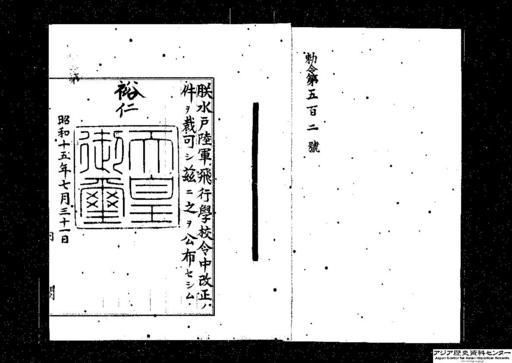 勅令第五百二號
朕水戸陸軍飛行學校令中改正ノ
件ヲ裁可シ茲ニ之ヲ公布セシム
裕仁
天皇
御璽
昭和十五年七月三十一日
内閣
アジア歴史資料センター
Japan Center for Asian Historical Records